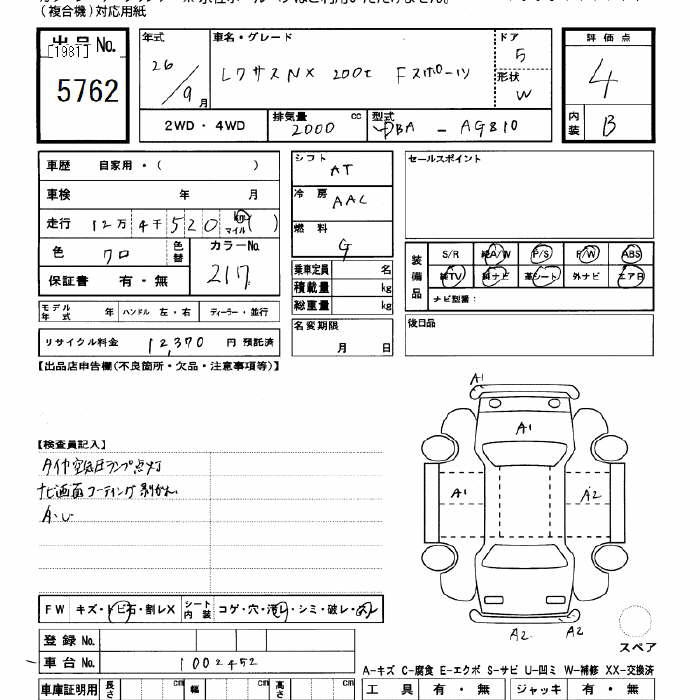 (複合機)対応用紙
出品No.
[1981]
5762
年式 車名・グレード ドア 評価点
26/9月 レクサスNX 200t Fスポーツ 5 4
形状 W
2WD・4WD 排気量 2000 cc 型式 DBA-AGZ10 内装 B
車歴 自家用・( )
車検 年 月
走行 12万 4千 5 2 0 km マイル ( )
色 クロ 色替 カラーNo. 217
保証書 有・無
モデル年式 年 ハンドル 左・右 ディーラー・並行
リサイクル料金 12,370 円 預託済
シフト AT
冷房 AAC
燃料 G
乗車定員 名
積載量 kg
総重量 kg
名変期限 月 日
セールスポイント
装備品 S/R 純A/W P/S P/W ABS
純TV 純ナビ 革シート 外ナビ エアB
ナビ型番:
後日品
【出品店申告欄(不良箇所・欠品・注意事項等)】
【検査員記入】
タイヤ空気圧ランプ点灯
ナビ画面コーティング剥がれ
A・U
A1
A1
A1 A2
A2 A2
スペア
FW キズ・トビ石・割レX シート内装 コゲ・穴・汚レ・シミ・破レ・スレ
登録No.
車台No. 1002452
A-キズ C-腐食 E-エクボ S-サビ U-凹ミ W-補修 XX-交換済
車庫証明用 長さ cm 幅 cm 高さ cm 工具 有・無 ジャッキ 有・無